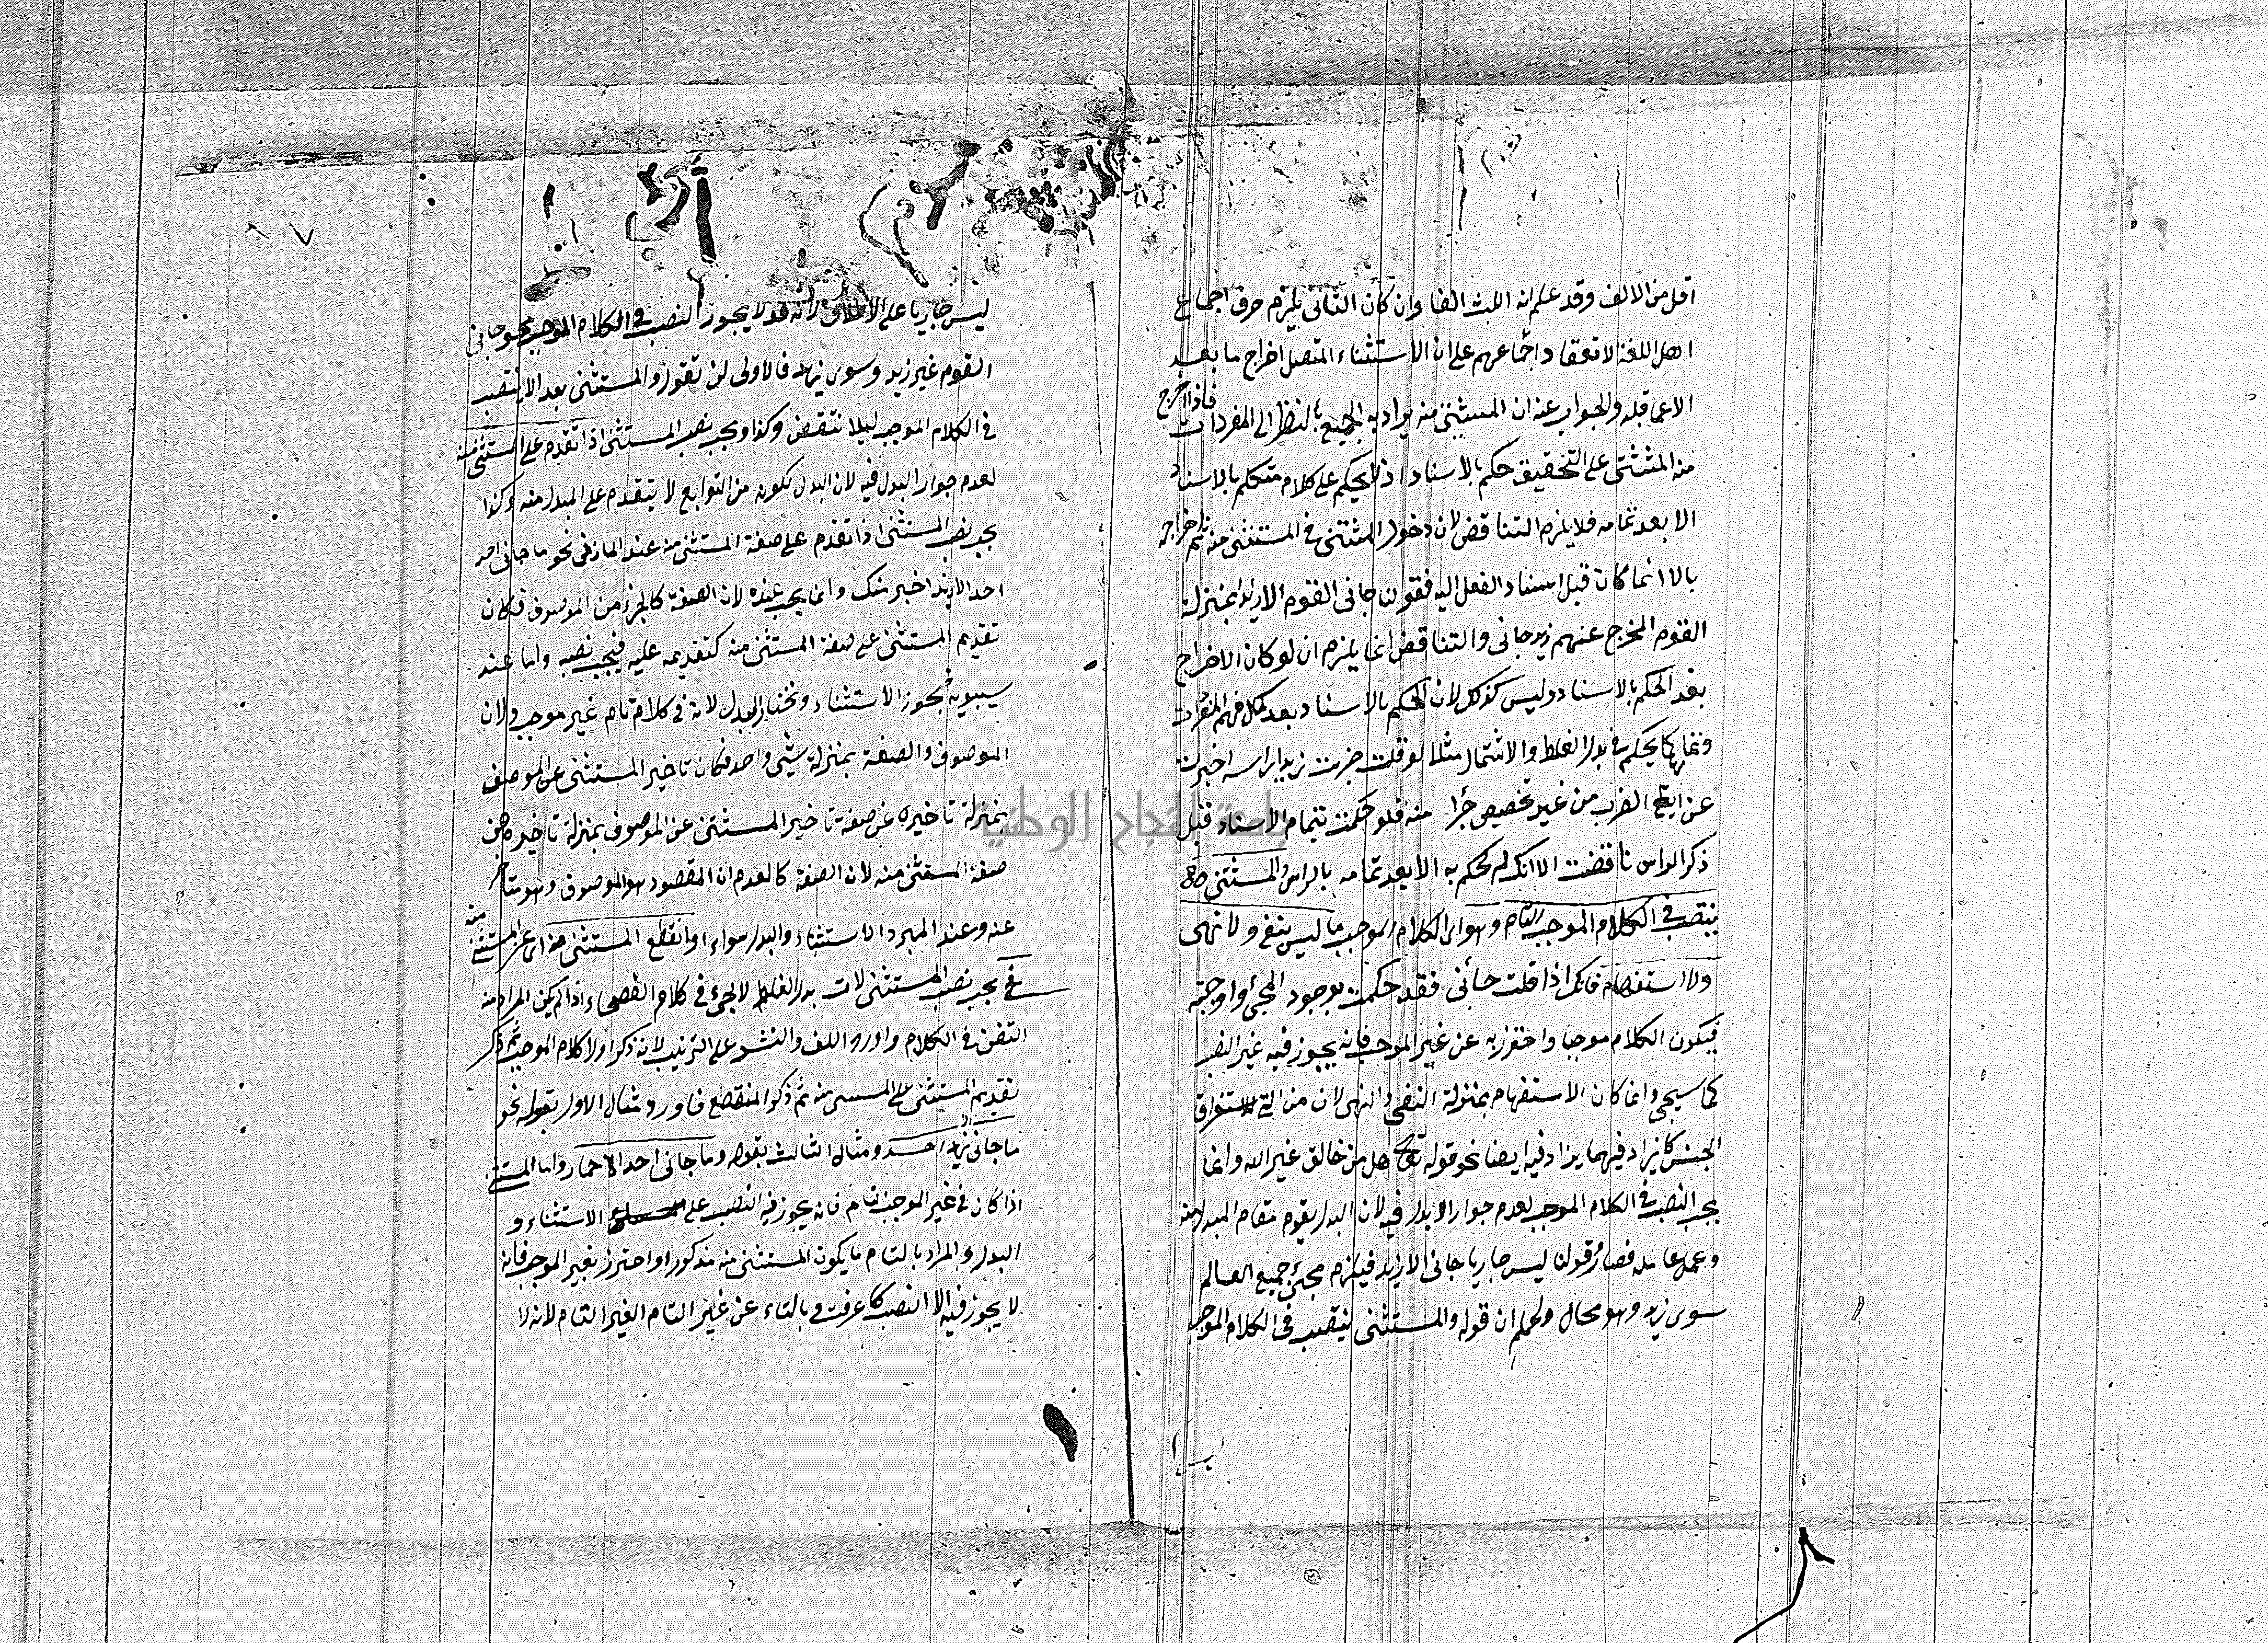 اقل من الالف وقد علم انه اللبث الفا وان كان الثانى يلزم خرق اجماع
اهل اللغة لانعقاد اجماعهم على ان الاستثناء المتصل اخراج ما بعد
الا عما قبله والجواب عنه ان المستثنى منه يراد به الجميع بالنظر الى المفردات فاذا اخرج
منه المستثنى على التحقيق حكم بالاسناد اذ لا يحكم على كلام متكلم بالاسناد
الا بعد تمامه فلا يلزم التناقض لان دخول المستثنى فى المستثنى منه ثم اخراجه
بالا انما كان قبل اسناد الفعل اليه فقولنا جانى القوم الا زيدا بمنزلة
القوم المخرج عنهم زيد جانى والتناقض انما يلزم ان لو كان الاخراج
بعد الحكم بالاسناد وليس كذلك لان الحكم بالاسناد بعد كمال فهم المفردات
كما يحكم فى بدل الغلط والاشتمال مثلا لو قلت ضربت زيدا راسه اخبرت
عن ايقاع الضرب من غير تخصيص جزا منه فلو حكمت بتمام الاسناد قبل
ذكر الراس ناقضت الا انك لم تحكم به الا بعد تمامه بالراس والمستثنى
ينتصب فى الكلام الموجب التام وهو اى الكلام الموجب ما ليس بنفى ولا نهى
ولا استفهام فانك اذا قلت جائنى فقد حكمت بوجود المجئ واوجبته
فيكون الكلام موجبا واحترز به عن غير الموجب فانه يجوز فيه غير النصب
كما سيجى وانما كان الاستفهام بمنزلة النفى والنهى لان من التى لاستغراق
الجنس كما يزاد فيهما يزاد فيه ايضا نحو قوله تعالى هل من خالق غير الله وانما
يجب النصب فى الكلام الموجب لعدم جواز الابدال فيه لان البدل يقوم مقام المبدل منه
وعمل عامله فصار قولنا ليس جاريا جانى الا زيد فيلزم مجئ جميع العالم
سوى زيد وهو محال واعلم ان قوله والمستثنى ينتصب فى الكلام الموجب
ليس جاريا على الاطلاق لانه قد لا يجوز النصب فى الكلام الموجب نحو جانى
القوم غير زيد وسوى زيد فالاولى ان تقول والمستثنى بعد الا ينتصب
فى الكلام الموجب ليلا ينتقض وكذا ويجب نصب المستثنى اذا تقدم على المستثنى منه
لعدم جواز البدل فيه لان البدل لكونه من التوابع لا يتقدم على المبدل منه وكذا
يجب نصب المستثنى اذا تقدم على صفة المستثنى منه عند المازنى نحو ما جانى احد
احد الا زيدا خير منك وانما يجب عنده لان الصفة كالجزء من الموصوف فكان
تقديم المستثنى على صفة المستثنى منه كتقديمه عليه فيجب نصبه واما عند
سيبويه يجوز الاستثناء ويختار البدل لانه فى كلام تام غير موجب ولان
الموصوف والصفة بمنزلة شيئ واحد فكان تاخير المستثنى عن الموصوف
بمنزلة تاخيره عن صفة تاخير المستثنى عن الموصوف بمنزلة تاخيره عن
صفة المستثنى منه لان الصفة كالعدم ان المقصود هو الموصوف وهو متاخر
عنه وعند المبرد الاستثناء والبدل سواء او انقطع المستثنى منه اى عن المستثنى منه
يجب نصب المستثنى لان بدل الغلط لا يجرى فى كلام الفصحاء اذا لم يكن المراد منه
التفنن فى الكلام واورد اللف والنشر على الترتيب لانه ذكر اولا كلام الموجب ثم ذكر
تقديم المستثنى على المستثنى منه ثم ذكر المنقطع فاورد مثال الاول بقوله نحو
ما جانى الا زيدا احد ومثال الثالث بقوله وما جانى احد الا حمارا واما المستثنى
اذا كان فى غير الموجب تام فانه يجوز فيه النصب على الاستثناء و
البدل والمراد بالتام ما يكون المستثنى منه مذكورا واحترز بغير الموجب فانه
لا يجوز فيه الا النصب كما عرفت وبالتاء عن غير التام الغير التام لانه لا
جامعة النجاح الوطنية